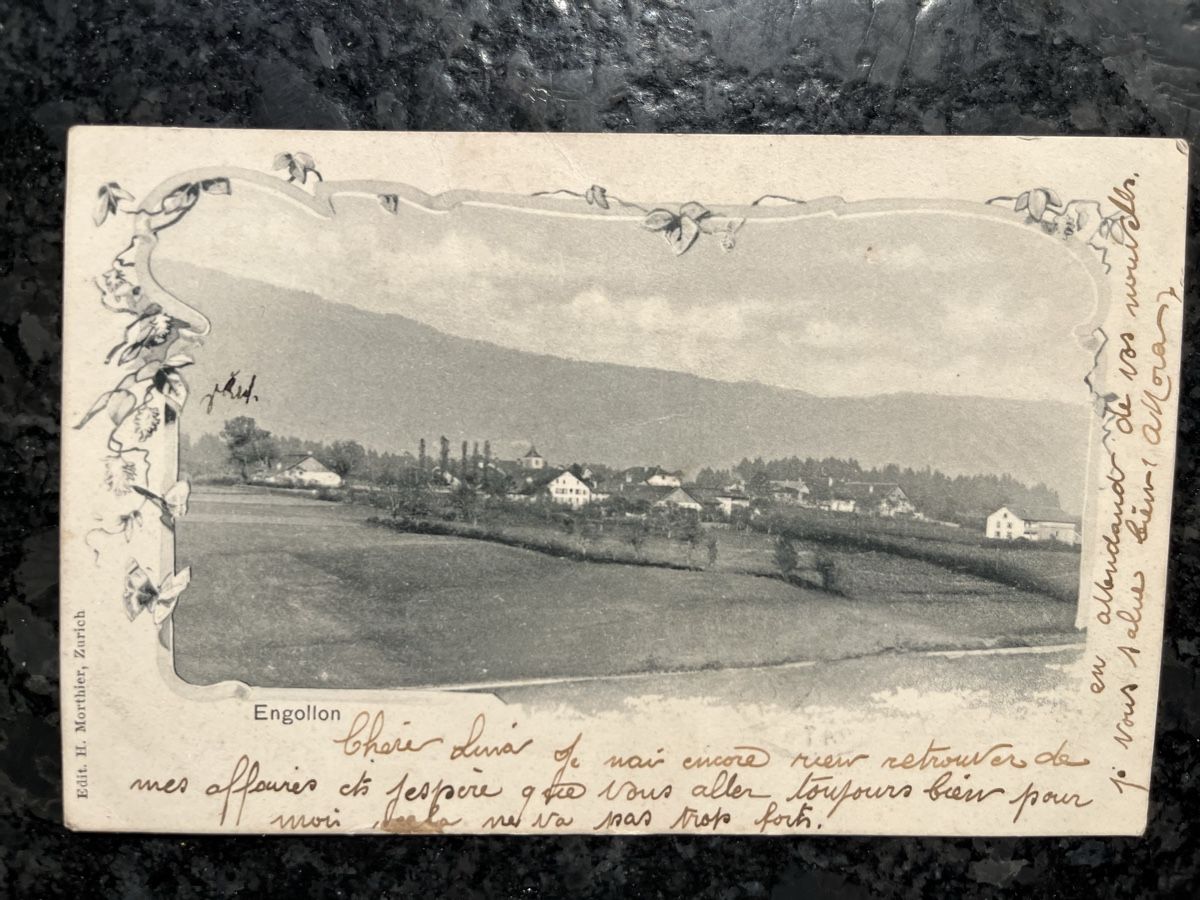 Engollon
Edit. H. Morthier, Zurich
Chère Lina Je nai encore rien retrouver de
mes affaires et j'espère que vous aller toujours bien pour
moi cela ne va pas trop forts.
en attendand de vos nouvelles.
je vous salue bien